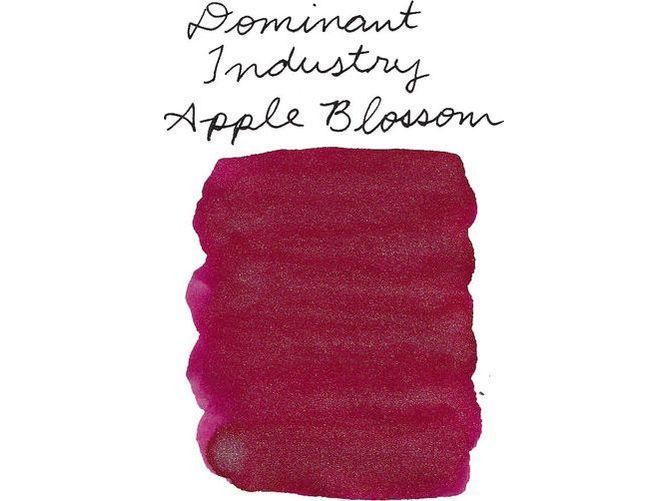 Dominant
Industry
Apple Blossom